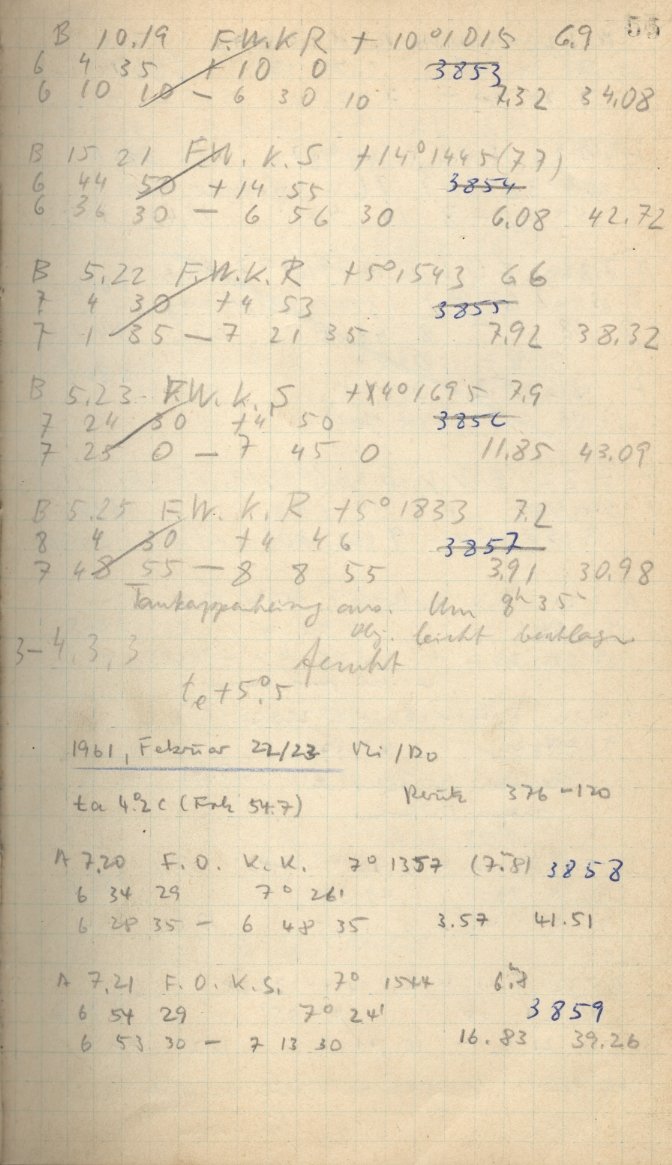 55
B 10.19 F.W.K R + 10° 1015 6.9
6 4 35 + 10 0 3853
6 10 10 – 6 30 10 7.32 34.08
B 15 21 F.W. K. S +14° 1445 (7.7)
6 44 50 +14 55 3854
6 36 30 – 6 56 30 6.08 42.72
B 5.22 F.W.K.R +5° 1543 6.6
7 4 30 +4 53 3855
7 1 35 – 7 21 35 7.92 38.32
B 5.23 F.W.K.S +4° 1695 7.9
7 24 30 +4 50 3856
7 25 0 – 7 45 0 11.85 43.09
B 5.25 F.W.K.R +5° 1833 7.2
8 4 30 +4 46 3857
7 48 55 – 8 8 55 3.91 30.98
Um 8h 35
Obj. leicht beschlagen
3–4, 3, 3
te +5°.5
1961, Februar 22/23
ta 4°2 C 376 – 120
A 7.20 F. O. K. K. 7° 1357 (7.8) 3858
6 34 29 7° 26'
6 28 35 – 6 48 35 3.57 41.51
A 7.21 F. O. K. S. 7° 1544 6.8
6 54 29 7° 24' 3859
6 53 30 – 7 13 30 16.83 39.26